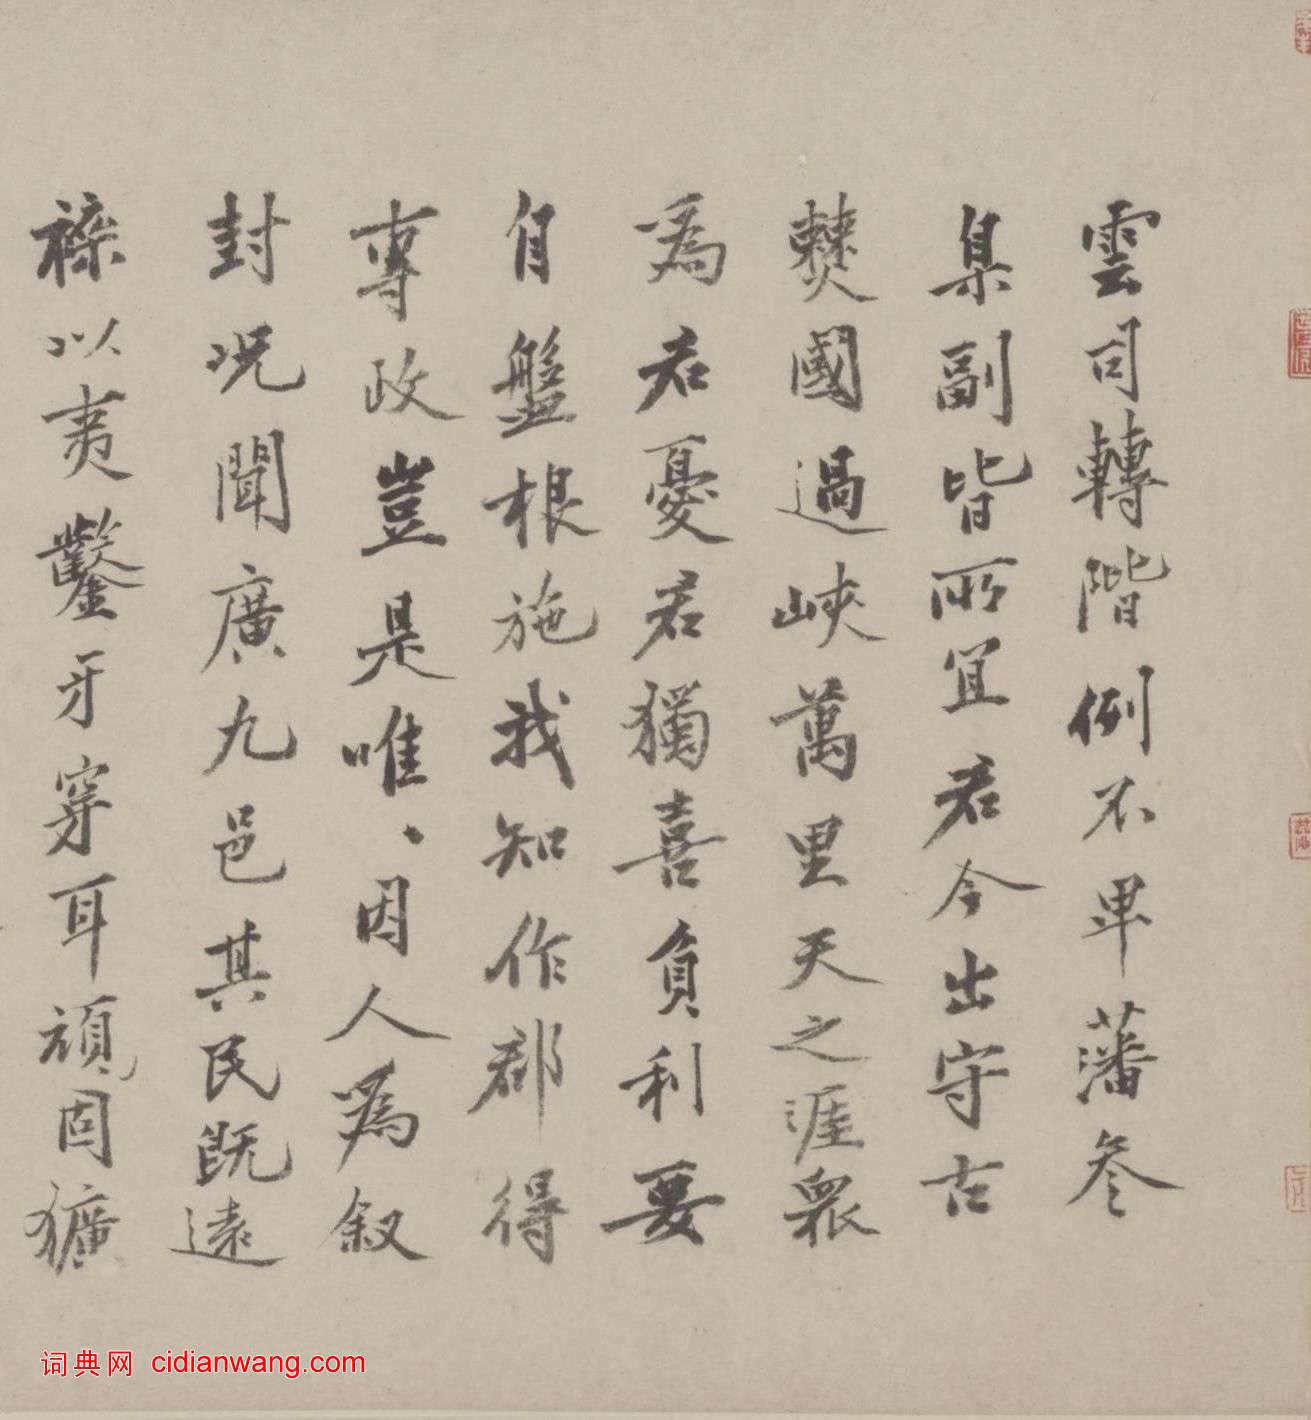 雲司轉階例不卑藩參
臬副皆所宜君今出守古
僰國過峽萬里天之涯衆
為君憂君獨喜負利要
自盤根施我知作郡得
專政豈是唯、因人為叙
封况聞廣九邑其民既遠
雜以夷鑿牙穿耳頑固獷
词典网 cidianwang.com